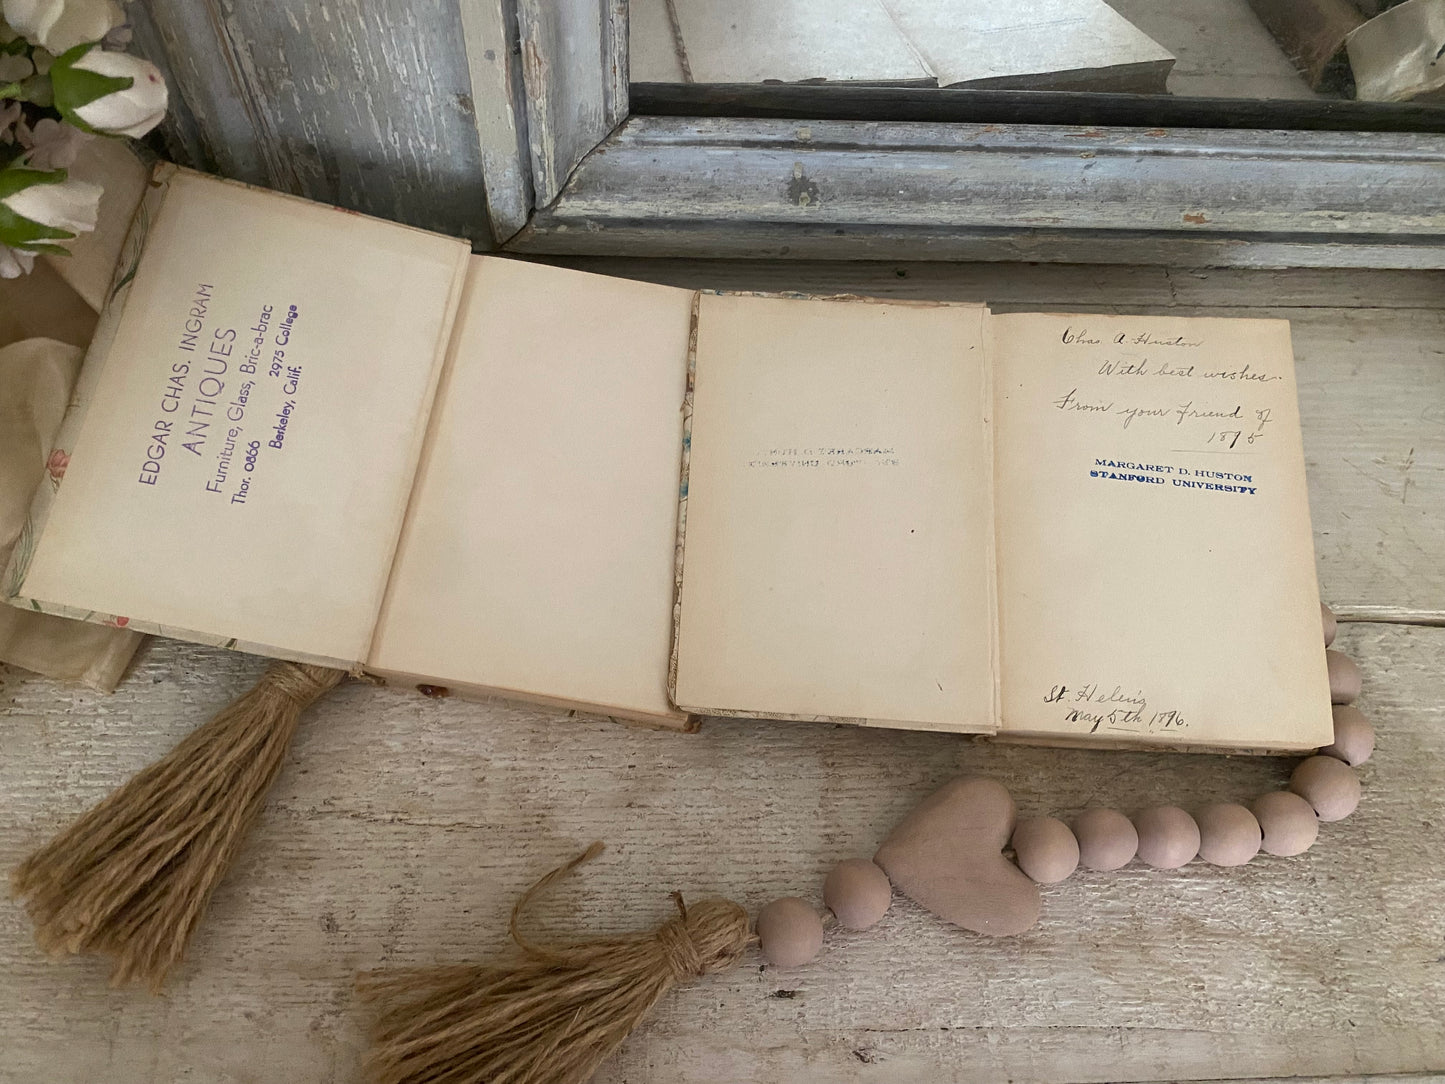 EDGAR CHAS. INGRAM
ANTIQUES
Furniture, Glass, Bric-a-brac
Thor. 0866 2975 College
Berkeley, Calif.
Chas. A. Huston
With best wishes.
From your friend of
1895
MARGARET D. HUSTON
STANFORD UNIVERSITY
St. Helena
May 5th 1896.